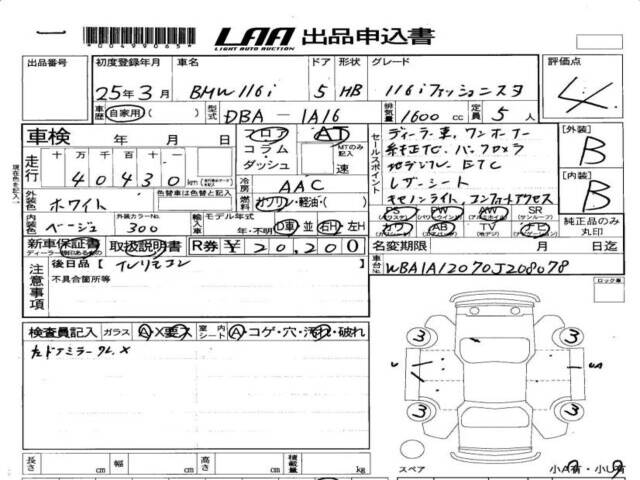 *00499065*
LAA 出品申込書
LIGHT AUTO AUCTION
出品番号 初度登録年月 車名 ドア 形状 グレード 評価点
25年3月 BMW 116i 5 HB 116i ファッショニスタ 4
車歴 自家用 型式 DBA-1A16 排気量 1600cc 定員 5人
車検 年 月 日
フロア AT
コラム MTのみ記入
ダッシュ 速
走行 十万 万 千 百 十 一
40430km
冷房 AAC
外装色 ホワイト 色替車は色替と記入 燃料 ガソリン・軽油・( )
内装色 ベージュ 外装カラーNo. 300 輸入車 モデル年式 年・不明 D車・並 右H・左H
新車保証書 取扱説明書 R券 ¥20,200
セールスポイント
ディーラー車 ワンオーナー
純正TC バックカメラ
地デジTV ETC
レザーシート
キセノンライト コンフォートアクセス
PS PW AW SR
カワ AB TV ナビ
純正品のみ丸印
【外装】
B
【内装】
B
名変期限 月 日迄
車台No. WBA1A12070J208078
注意事項
後日品 TVリモコン
不具合箇所等
ロック車
検査員記入 ガラス A・X要 室内シート A・コゲ・穴・汚れ・破れ
左ドアミラーウレX
3 3
U UA
3 3
長さ cm 幅 cm 高さ cm 積載量 kg
スペア 小A有・小U有